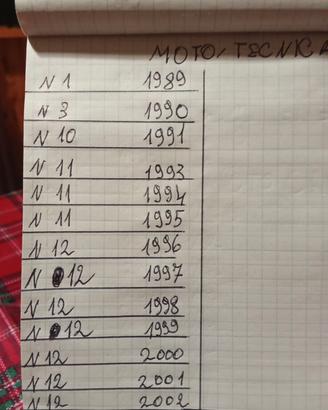 MOTO/TECNICA
N 1 1989
N 3 1990
N 10 1991
N 11 1993
N 11 1994
N 11 1995
N 12 1996
N 12 1997
N 12 1998
N 12 1999
N 12 2000
N 12 2001
N 12 2002